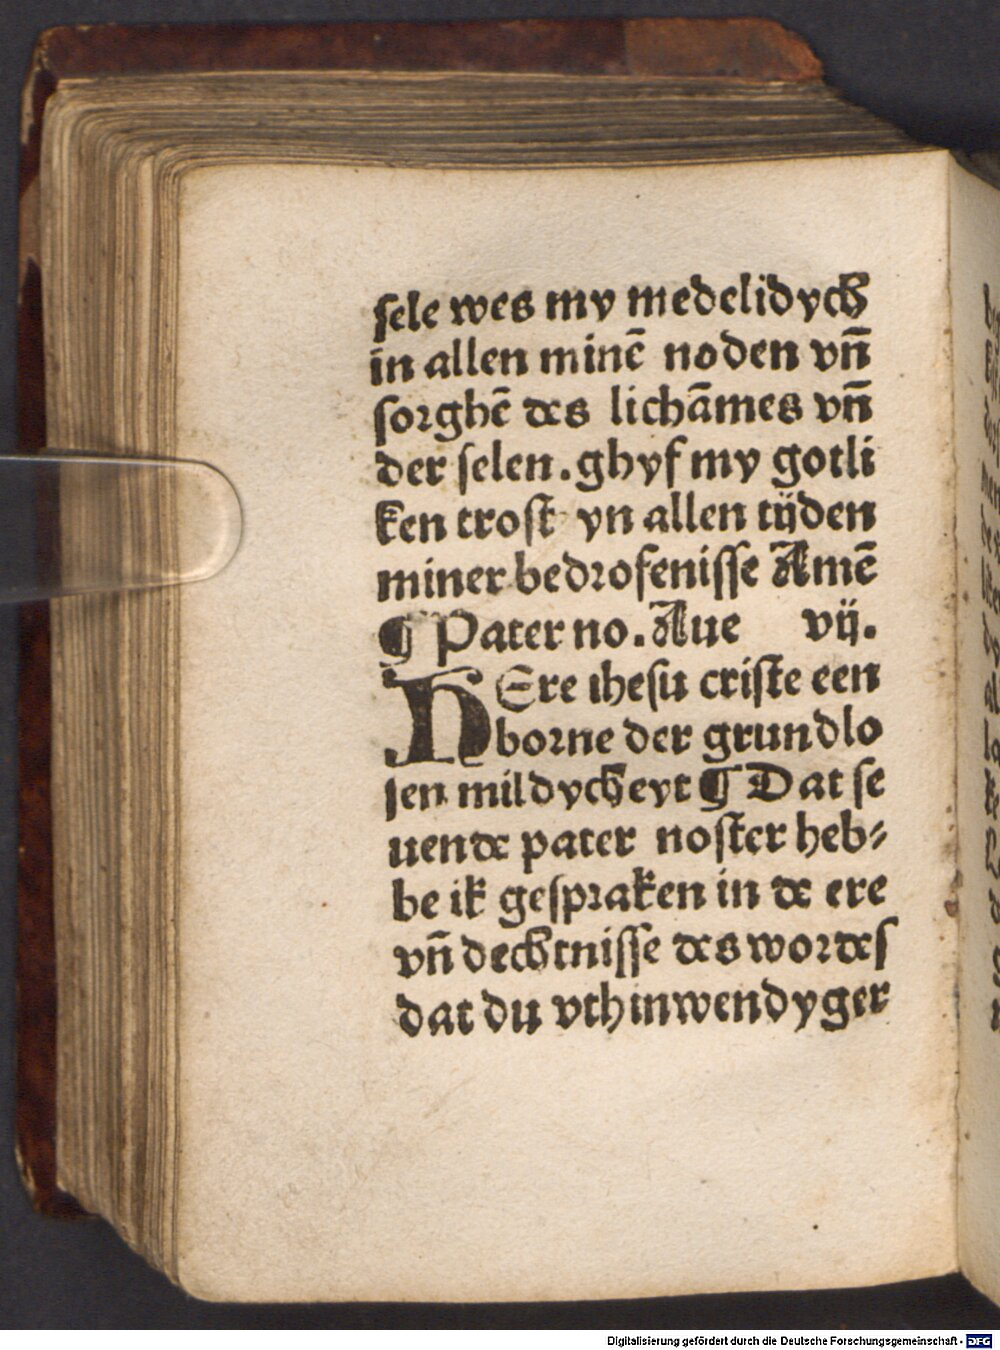 sele wes my medelidych
in allen minē noden vn̄
sorghē des lichāmes vn̄
der selen. ghyf my gotli
ken trost yn allen tijden
miner bedrofenisse Amē
¶ Pater no. Aue vij.
HEre ihesu criste een
borne der grundlo
sen mildycheyt ¶ Dat se
uende pater noster heb⸗
be ik gespraken in de ere
vn̄ dechtnisse des wordes
dat du vth inwendyger
Digitalisierung gefördert durch die Deutsche Forschungsgemeinschaft - DFG